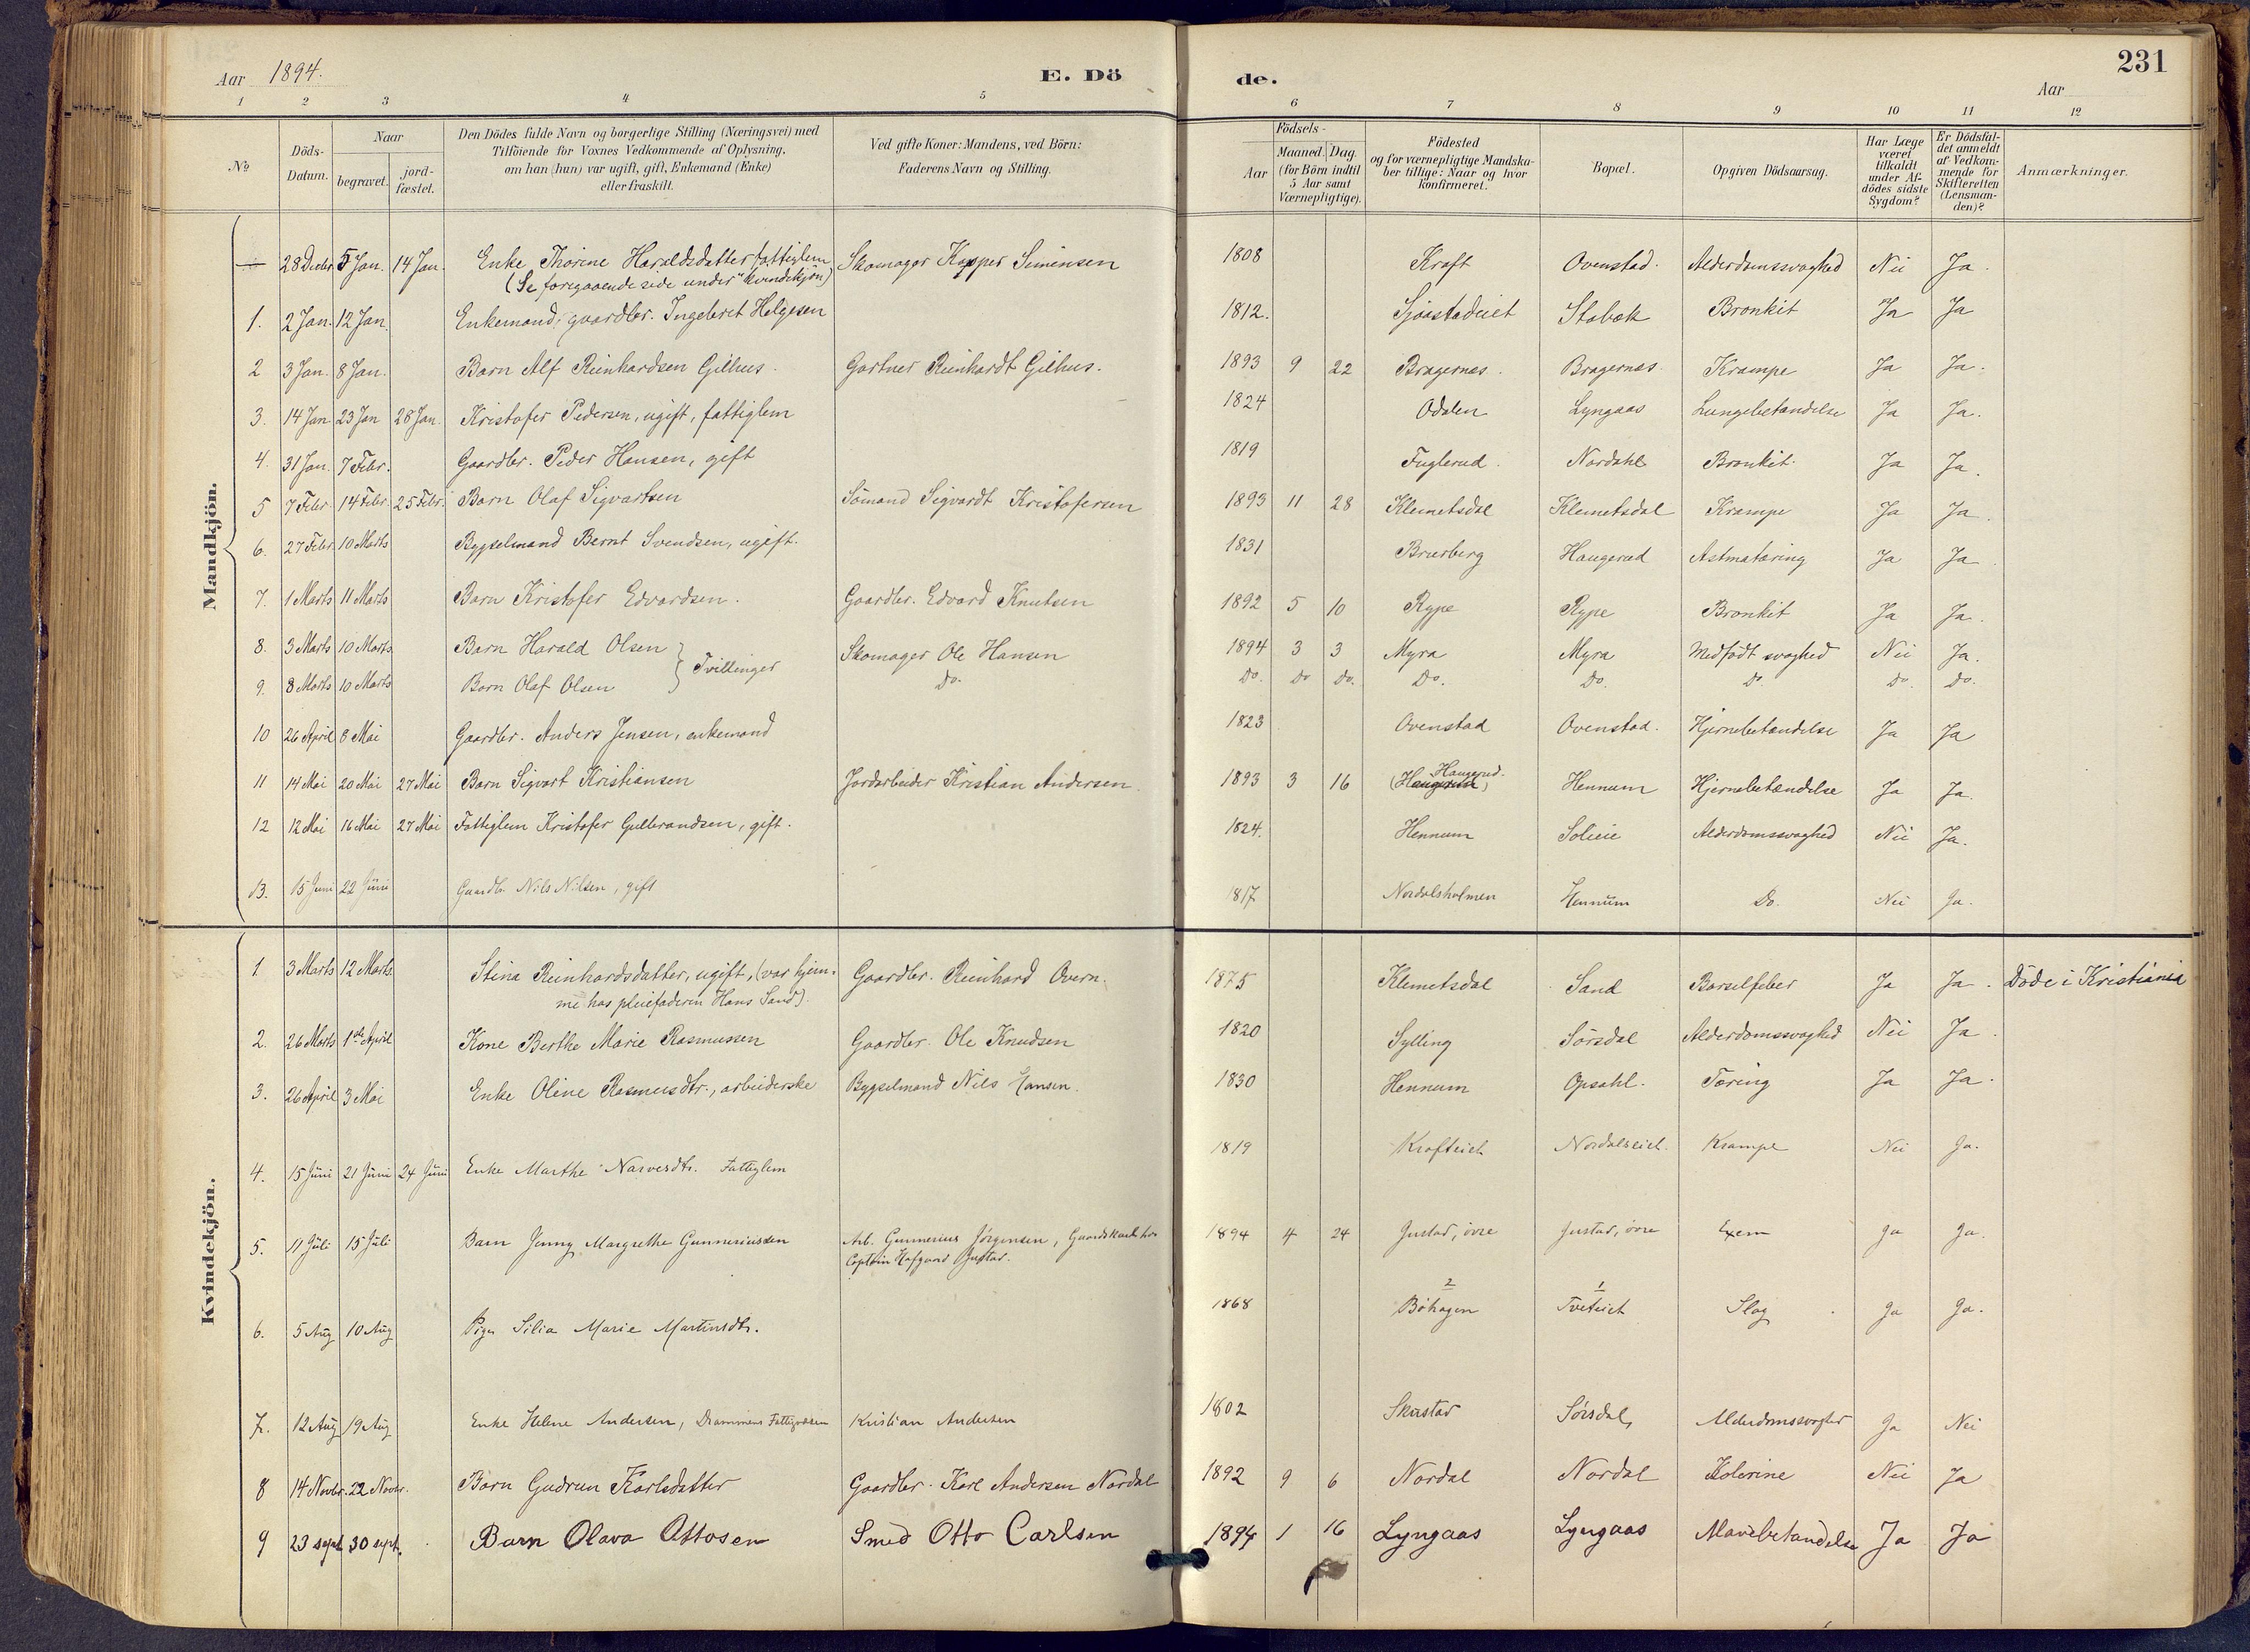 Aar 1894. E. Döde. 231
Aar
1 2 3 4 5 6 7 8 9 10 11 12
No
Döds-Datum.
Naar
begravet.
jord-fæstet.
Den Dödes fulde Navn og borgerlige Stilling (Næringsvei) med
Tilföiende for Voxnes Vedkommende af Oplysning,
om han (hun) var ugift, gift, Enkemand (Enke)
eller fraskilt.
Ved gifte Koner: Mandens, ved Börn:
Faderens Navn og Stilling.
Födsels-
Aar
Maaned. Dag.
(for Börn indtil
5 Aar samt
Værnepligtige).
Födested
og for værnepligtige Mandska-
ber tillige: Naar og hvor
konfirmeret.
Bopæl.
Opgiven Dödsaarsag.
Har Læge
været
tilkaldt
under Af-
dödes sidste
Sygdom?
Er Dödsfal-
det anmeldt
af Vedkom-
mende for
Skifteretten
(Lensman-
den)?
Anmærkninger.
Mandkjön.
— 28 Decbr 5 Jan. 14 Jan. Enke Thorine Haraldsdatter fattiglem Skomager Kasper Simensen 1808 Kraft Ovenstad. Alderdomssvaghed Nei Ja.
(Se foregaaende side under "kvindekjön)
1. 2 Jan. 12 Jan. Enkemand, gaardbr. Ingebret Helgesen 1812. Sjåastadeiet Stabæk Bronkit Ja Ja
2 3 Jan. 8 Jan. Barn Alf Reinhardsen Gilhus. Gartner Reinhardt Gilhus. 1893 9 22 Bragernæs. Bragernæs Krampe Ja Ja.
3. 14 Jan 23 Jan 28 Jan. Kristofer Pedersen, ugift, fattiglem 1824 Odalen Lyngaas Lungebetændelse Ja Ja.
4. 31 Jan. 7 Febr. Gaardbr. Peder Hansen, gift 1819 Fuglerud. Nordahl Bronkit. Ja Ja.
5 7 Febr 14 Febr. 25 Febr. Barn Olaf Sigvartsen Sömand Sigvardt Kristofersen 1893 11 28 Klemetsdal Klemetsdal Krampe Ja Ja.
6. 27 Febr 10 Marts Bygselmand Bernt Svendsen, ugift. 1831 Bruerberg Haugerud Astmatæring Ja Ja
7. 1 Marts 11 Marts Barn Kristofer Edvardsen. Gaardbr. Edvard Knutsen 1892 5 10 Rype Rype Bronkit Ja Ja.
8. 3 Marts 10 Marts Barn Harald Olsen } Tvillinger Skomager Ole Hansen 1894 3 3 Myra Myra Medfödt svaghed Nei Ja.
9. 8 Marts 10 Marts Barn Olaf Olsen Do. Do. Do Do. Do. Do. Do. Do. Do.
10 26 April 8 Mai Gaardbr. Anders Jensen, enkemand 1823 Ovenstad Ovenstad. Hjernebetændelse Ja Ja
11 14 Mai 20 Mai 27 Mai Barn Sigvart Kristiansen Jordarbeider Kristian Andersen. 1893 3 16 (Haugerud) Haugerud. Hennum Hjernebetændelse Ja Ja.
12 12 Mai 16 Mai 27 Mai Fattiglem Kristofer Gulbrandsen, gift. 1824. Hennum Solieie Alderdomssvaghed Nei Ja.
13. 15 Juni 22 Juni Gaardb. Nils Nilsen, gift 1817 Nordalsholmen Hennum Do. Nei Ja.
Kvindekjön.
1 3 Marts 12 Marts Stina Reinhardsdatter, ugift, (var hjem- Gaardbr. Reinhard Overn. 1875 Klemetsdal Sand Barselfeber Ja Ja. Döde i Kristiania
me hos pleiefaderen Hans Sand).
2. 26 Marts 1ste April Kone Berthe Marie Rasmussen Gaardbr. Ole Knudsen 1820 Sylling Sörsdal Alderdomssvaghed Nei Ja.
3. 26 April 3 Mai Enke Oline Rasmusdtr., arbeiderske Bygselmand Nils Hansen. 1830 Hennum Opsahl. Tæring Ja Ja.
4. 15 Juni 21 Juni 24 Juni Enke Marthe Narvesdtr. Fattiglem 1819 Krafteiet Nordalseiet. Krampe Nei Ja.
5. 11 Juli 15 Juli Barn Jenny Margrethe Gunneriussen Arb. Gunnerius Jörgensen, Gaardskarl hos 1894 4 24 Justad, övre Justad, övre Exem Ja Ja.
Captein Hofgaard Justad.
6. 5 Aug 10 Aug Pige Silia Marie Martinsdtr. 1868 2 Böhagen 1 Tveteiet Slag Ja Ja.
7. 12 Aug 19 Aug Enke Helene Andersen, Drammens Fattigvæsen Kristian Andersen 1802 Skustad Sörsdal, Alderdomssvaghed Ja Nei
8 14 Novbr. 22 Novbr. Barn Gudrun Karlsdatter Gaardbr. Karl Andersen Nordal 1892 9 6 Nordal Nordal Kolerine Nei Ja
9 23 sept 30 sept. Barn Olava Ottosen Smed Otto Carlsen 1894 1 16 Lyngaas Lyngaas Mavebetændelse Ja Ja